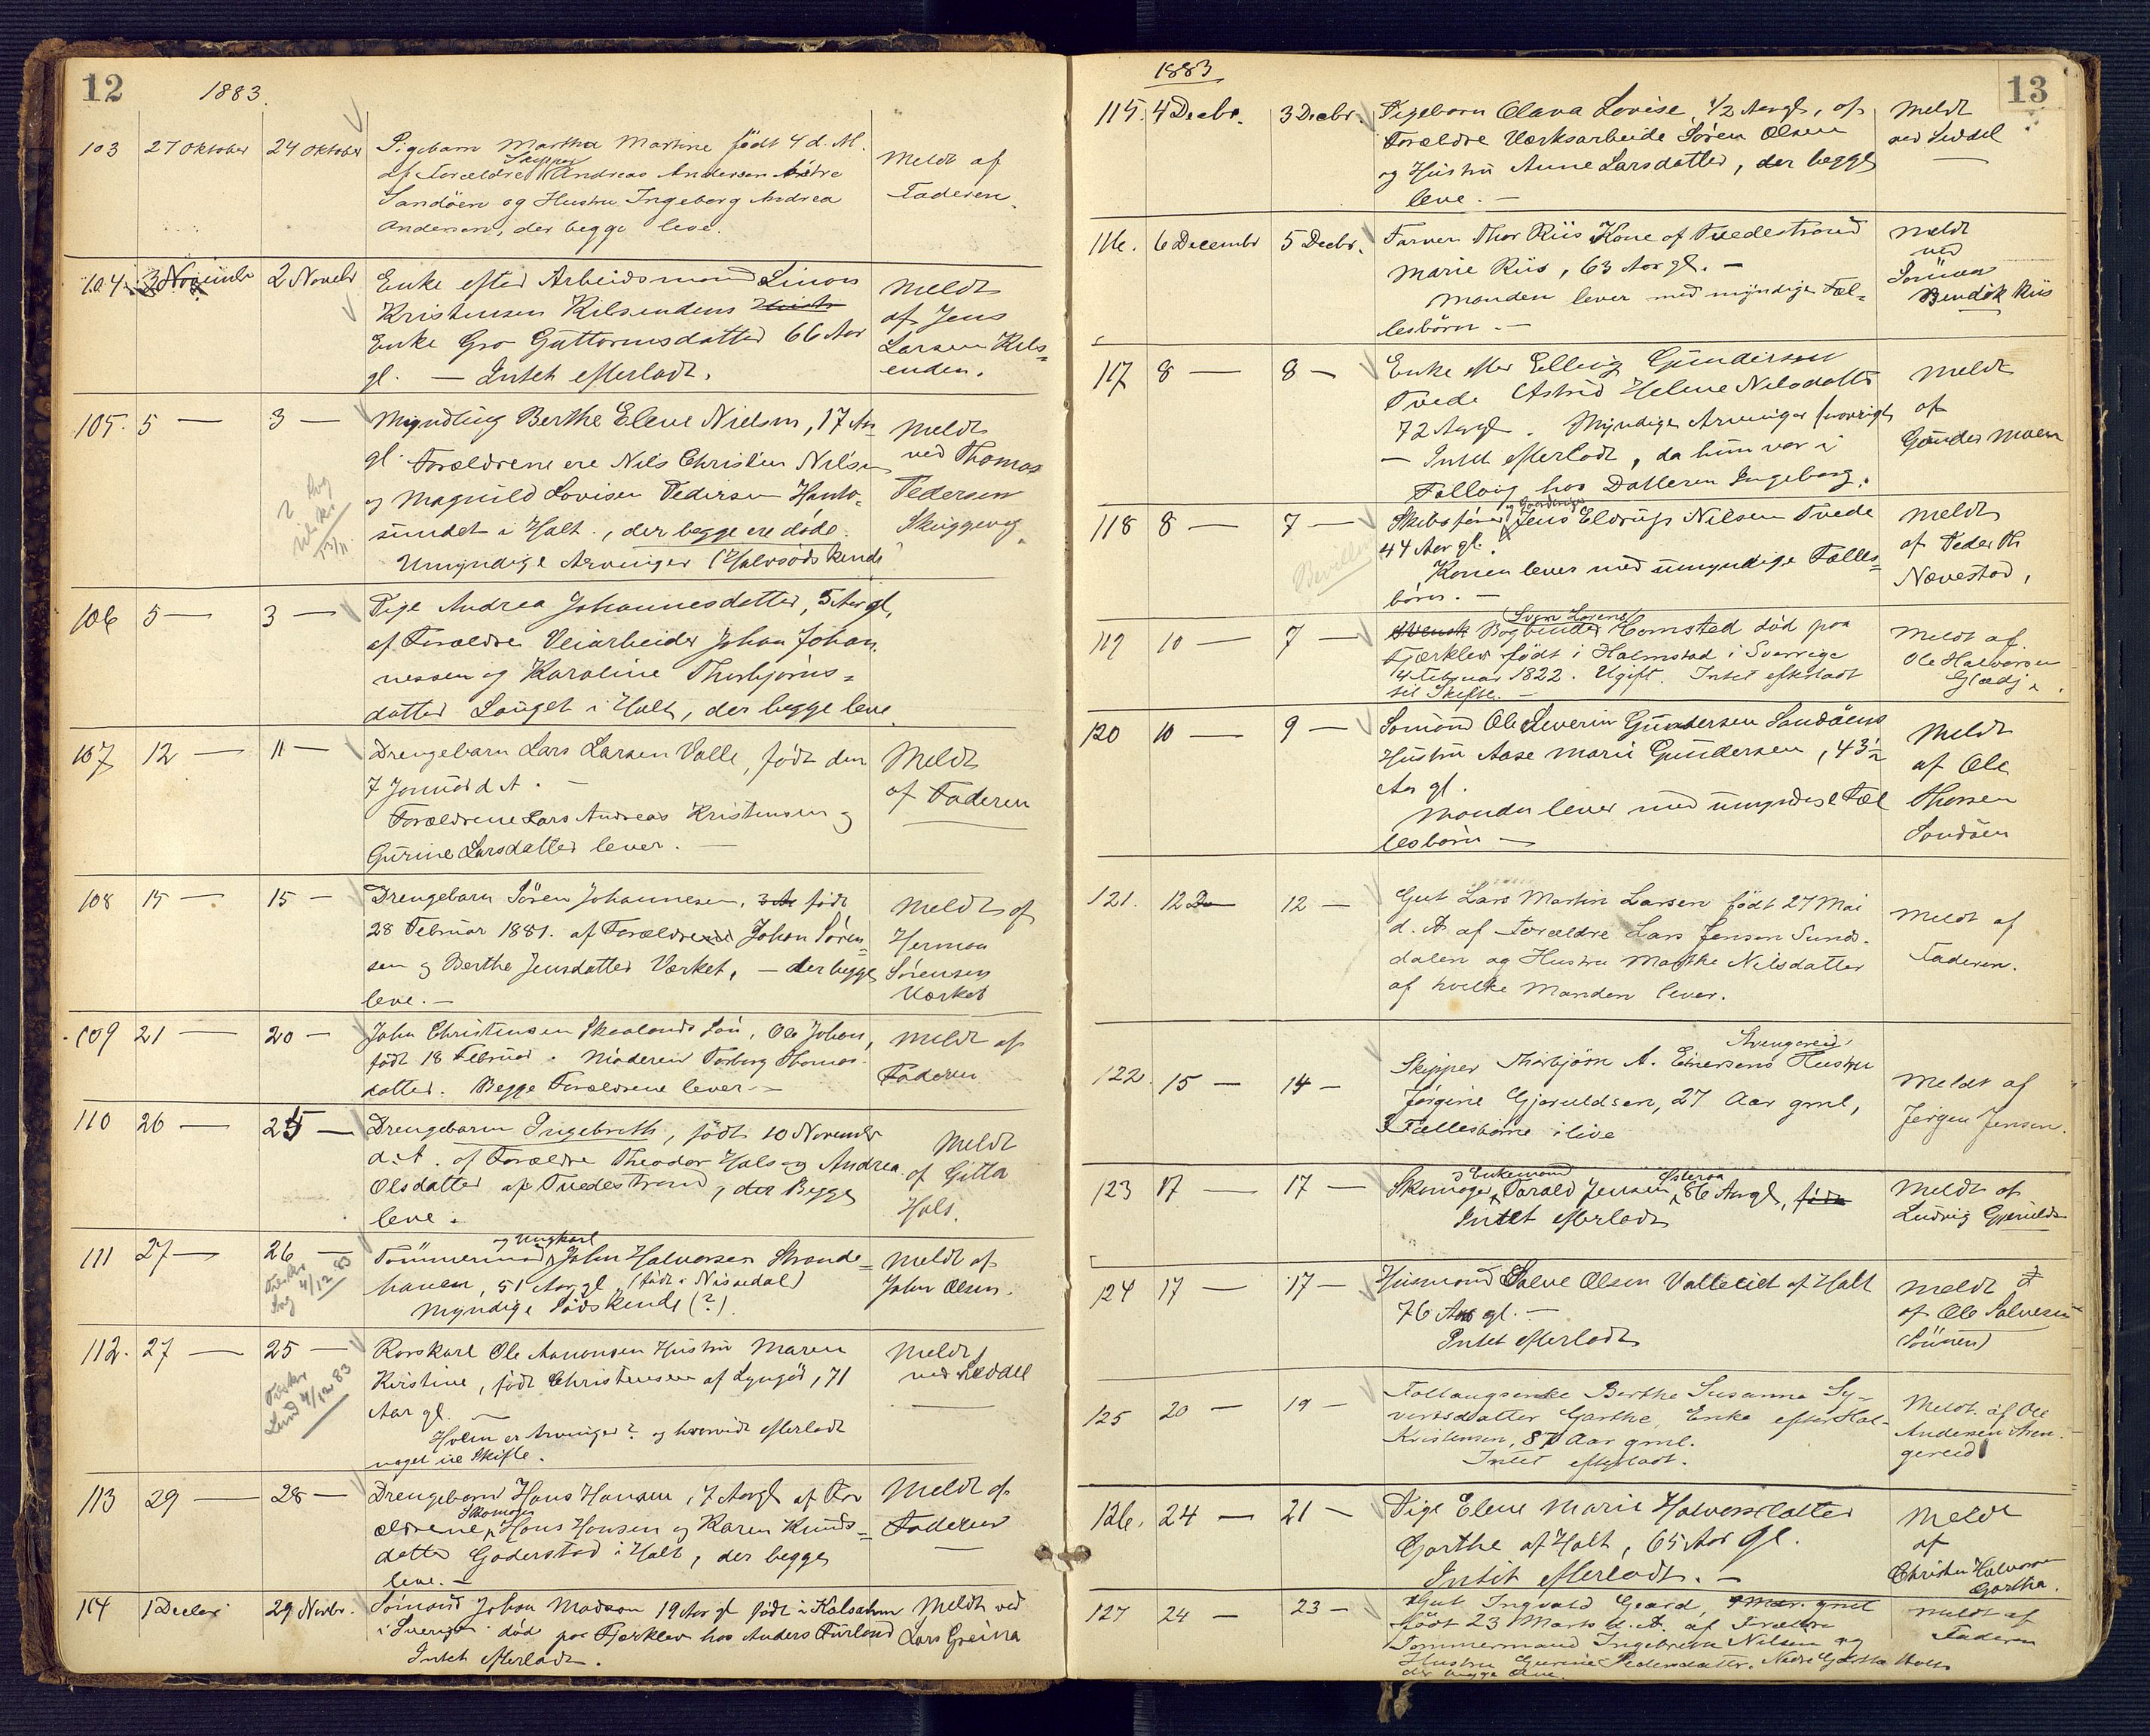 12
1883.
103 27 Oktober 24 Oktober Pigebarn Martha Martine født 4 d. M. Meldt af
Skipper
af Forældre Andreas Andersen Østre Faderen.
Sandöen og Hustru Ingeborg Andrea
Andersen, der begge leve.
104. 3 November 2 Novebr Enke efter Arbeidsmand Simon Meldt
Kristensen Kilsendens af Jens
Enke Gro Guttormsdatter 66 Aar Larsen Kils-
gl. — Intet efterladt. enden.
105. 5 — 3 — Myndling Berthe Elene Nielsen, 17 Aar Meldt
gl. Forældrene ere Nils Christian Nilsen ved Thomas
og Magnild Lovise Pedersen Hanto- Pedersen
sundet i Holt, der begge ere døde. Skuggevig
Umyndige Arvinger (Halvsødskende
106 5 — 3 — Pige Andrea Johannesdatter, 5 Aar gl,
af Forældre Veiarbeider Johan Johan-
nessen og Karoline Thorbjørns-
datter Lauget i Holt, der begge leve.
107 12 — 11 — Drengebarn Lars Larsen Valle, født den Meldt
7 Januar d A. — af Faderen
Forældrene Lars Andreas Kristensen og
Gurine Larsdatter lever. —
108 15 — 15 — Drengebarn Sören Johannesen, født Meldt af
28 Februar 1881. af Forældrene Johan Sören- Herman
sen og Berthe Jensdatter Værket, — der begge Sørensen
leve. — Værket
109 21 — 20 — John Christensen Skaalands Søn, Ole Johan, Meldt af
født 18 Februar. Moderen Torborg Thomas- Faderen
datter. Begge Forældrene lever —
110 26 — 25 — Drengebarn Ingebreth, født 10 November Meldt
d. A. af Forældre Theodor Hals og Andrea af Gitta
Olsdatter af Tvedestrand, der Begge Hals.
leve.
og Ungkarl
111 27 — 26 — Tömmermand John Halvorsen Strande- Meldt af
haven, 51 Aar gl, (født i Nissedal) John Olsen.
Myndige Södskende (?).
4/12 83
112. 27 — 25 — Rorskarl Ole Aanonsen Hustru Maren Meldt
Kirstine, født Christensen af Lyngör, 71 ved Seddel
Aar gl.
4/12 83
Hvem er Arvinger? og hvorvidt efterladt
noget til Skifte.
113 29 — 28 — Drengebarn Hans Hansen, 7 Aar gl af For Meldt af
Skomager
ældrene Hans Hansen og Karen Knuds- Faderen
datter Goderstad i Holt, der begge
leve. —
114 1 Decbr 29 Novbr. Sömand Johan Madson 19 Aar gl født i Kalsahm Meldt ved
i Sverige død paa Fjerklev hos Anders Furland Lars Greina
Intet efterladt.
13
1883
115. 4 Decbr. 3 Decbr. Pigebarn Olava Lovise, 1/2 Aar gl, af Meldt
Forældre Værksarbeide Søren Olsen ved Seddel
og Hustru Anne Larsdatter, der begge
leve. —
116. 6 Decembr 5 Decbr. Farver Thor Riis Kone af Tvedestrand Meldt
Marie Riis, 63 Aar gl. — ved
Manden lever med myndige Fæl- Sönnen
lesbörn. — Bendik Riis
117 8 — 8 — Enke efter Elling Gundersen Meldt
Tvede Astrid Helene Nilsdatter af
72 Aar gl. Myndige Arvinger forovrigt Gunder Moen
— Intet efterladt, da hun var i
Follaug hos Datteren Ingeborg.
og Gaardbruger
118 8 — 7 — Skibsfører Jens Eldrup Nilsen Tvede Meldt
44 Aar gl. af Peder Th
Konen lever med umyndige Fælles- Nævestad,
börn. —
Bevilling
Sven Lorens
119 10 — 7 — Svensk Bogbinder Comsted død paa Meldt af
Fjerklev født i Halmstad i Sverrige Ole Halvorsen
14 Februar 1822. Ugift. Intet efterladt
til Skifte. —
120 10 — 9 — Sömand Ole Severin Gundersen Sandöens Meldt
Hustru Aase Marie Gundersen, 43 1/2 af Ole
Aar gl. Thorsen
Manden lever med umyndige Fæl Sandöen
lesbörn —
121. 12 12 — Gut Lars Martin Larsen født 27 Mai Meldt af
d. A. af Forældre Lars Jensen Sunds- Faderen.
dalen og Hustru Marthe Nilsdatter
af hvilke Manden lever.
Strengereid
122. 15 — 14 — Skipper Thorbjörn A. Einersens Hustru Meldt af
Jørgine Gjeruldsen, 27 Aar gml, Jörgen Jensen.
3 Fællesbörn ilive
og Enkemand Østeraa
123 17 — 17 — Skomager Tarald Jensen, 86 Aar gl, Meldt af
Intet efterladt Ludvig Gjerulds
124 17 — 17 — Husmand Salve Olsen Valleeiet af Holt Meldt
76 Aar gl. — af Ole Salvesen
Intet efterladt (Sönnen)
125 20 — 19 — Follaugsenke Berthe Susanne Sy- Meldt af Ole
vertsdatter Garthe, Enke efter Hal- Andersen Stren-
Kristensen, 87 Aar gml. gereid
Intet efterladt.
126. 24 — 21 — Pige Elene Marie Halvorsdatter Meldt
Garthe af Holt, 65 Aar gl. af
Intet efterladt. — Christen Halvorsen
Gartha.
127 24 — 23 — Gut Ingvald Geard, Meldt af
født 23 Marts d. A. af Forældre Faderen
Tommermand Ingebreth Nilsen og
Hustru Gurine Pedersdatter. Nedre Gartha Holt
der begge leve.